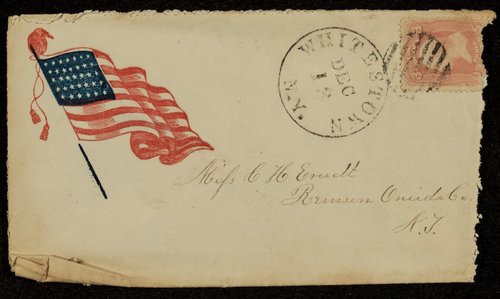 WHITESTOWN N.Y.
DEC
18
Miss C H Everett
Remsen Oneida Co.
N.Y.